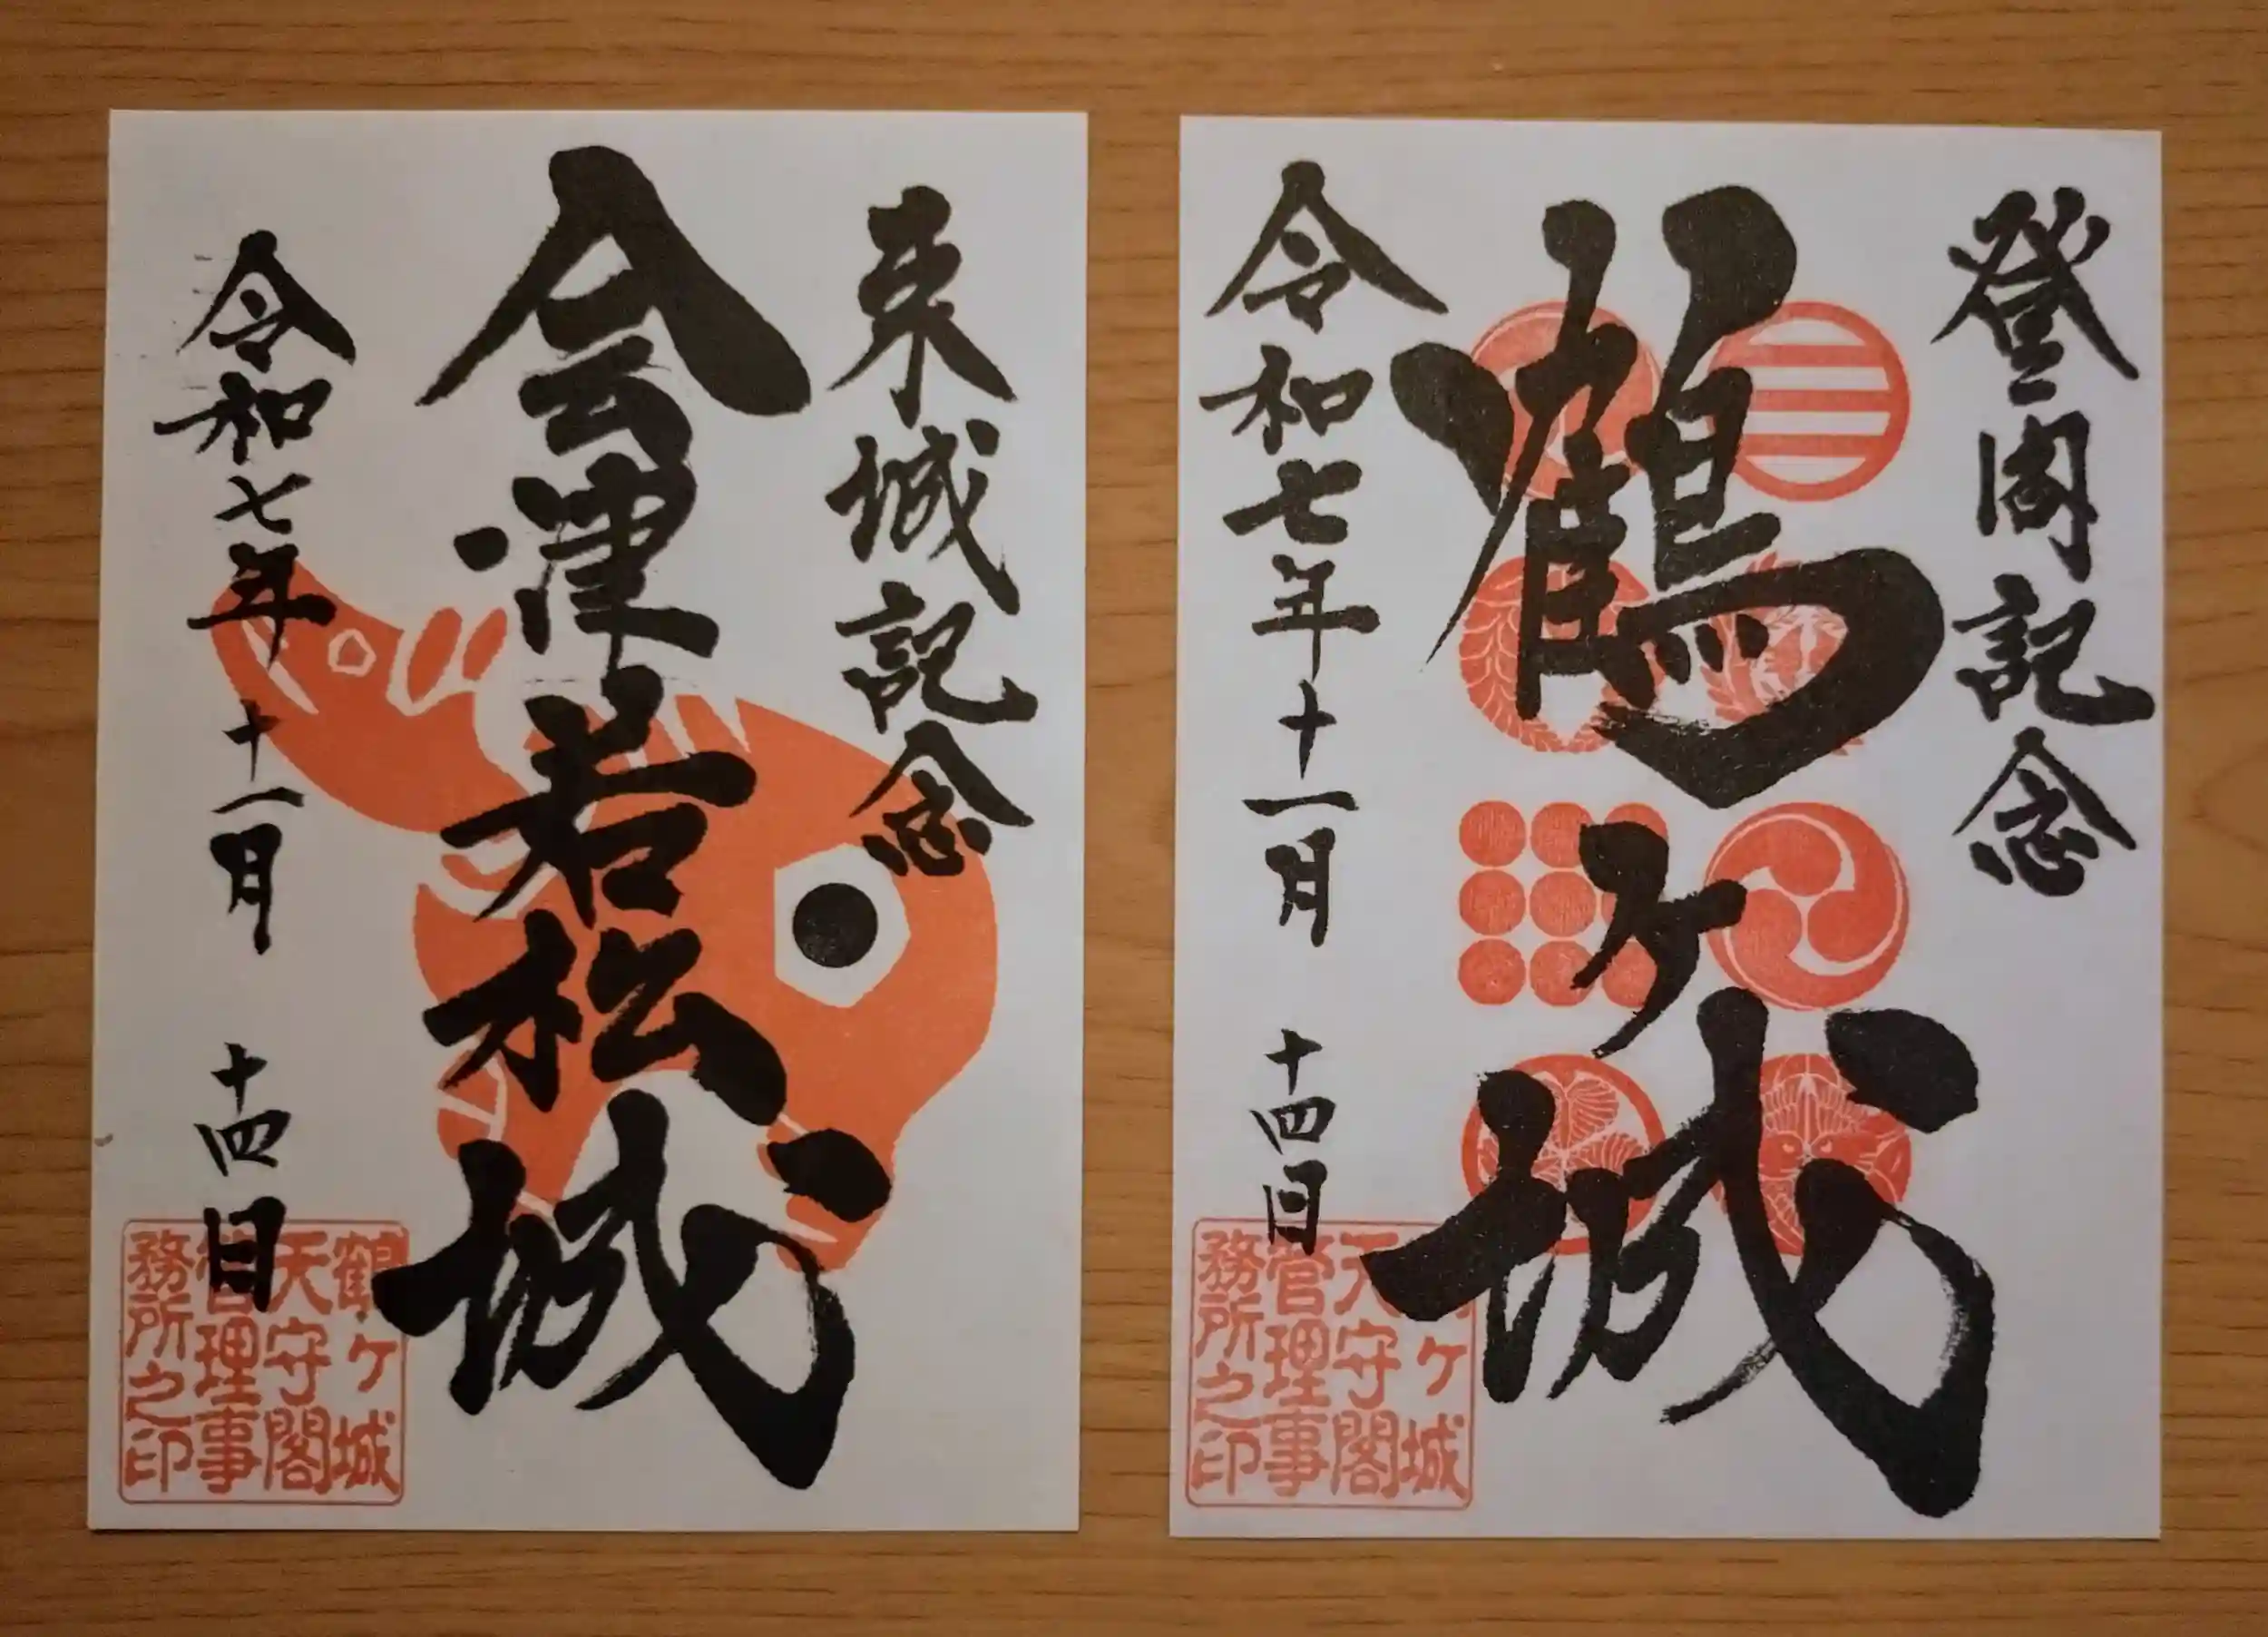 来城記念
会津若松城
令和七年十一月十四日
鶴ヶ城
天守閣
管理事
務所之印
登閣記念
鶴ヶ城
令和七年十一月十四日
ヶ城
天守閣
管理事
務所之印